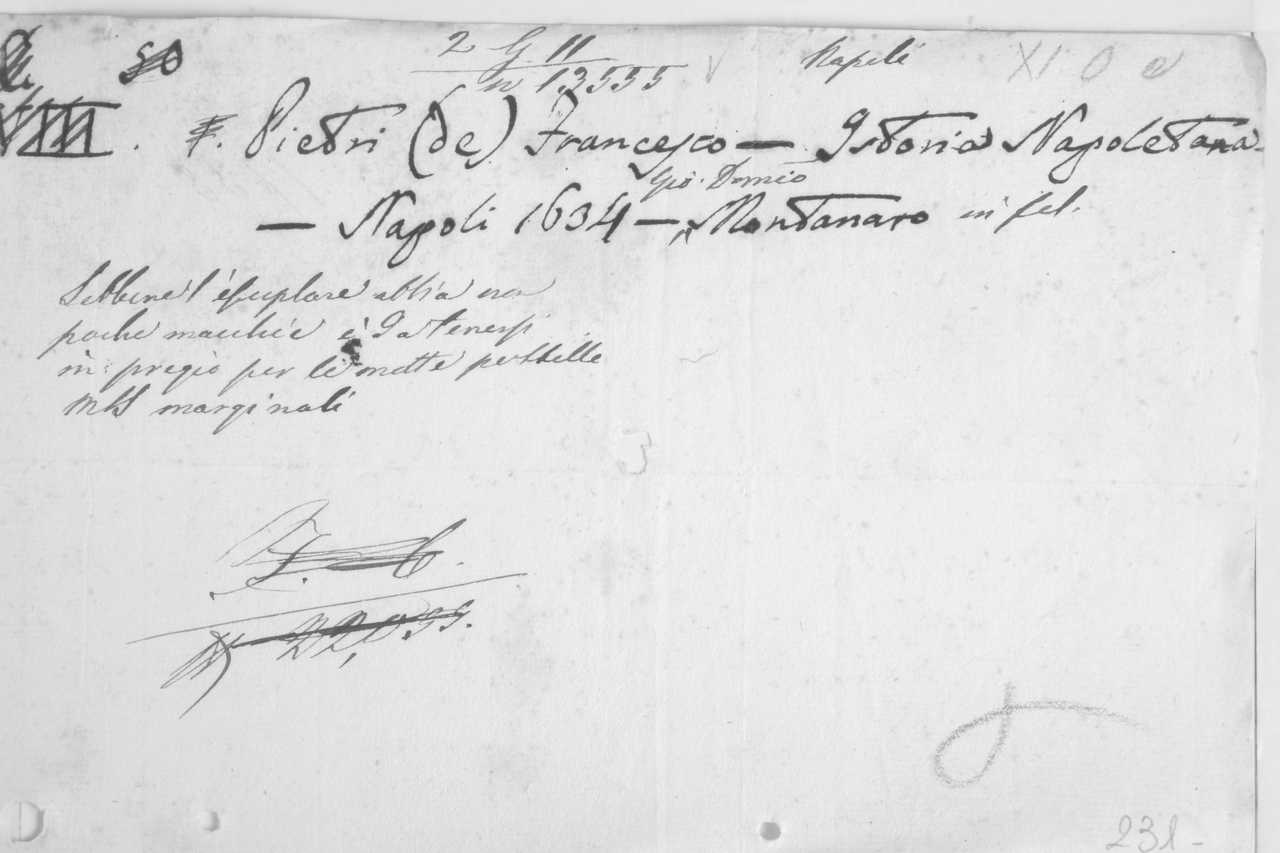 50
2 G 11 Napoli XI O e
n 13555
VIII . F. Pietri (de) Francesco — Istoria Napoletana
Gio. Domco
— Napoli 1634 — Montanaro in fol.
Sebbene l'esemplare abbia non
poche macchie è da tenersi
in pregio per le molte postille
MSS marginali
3
D
231 -